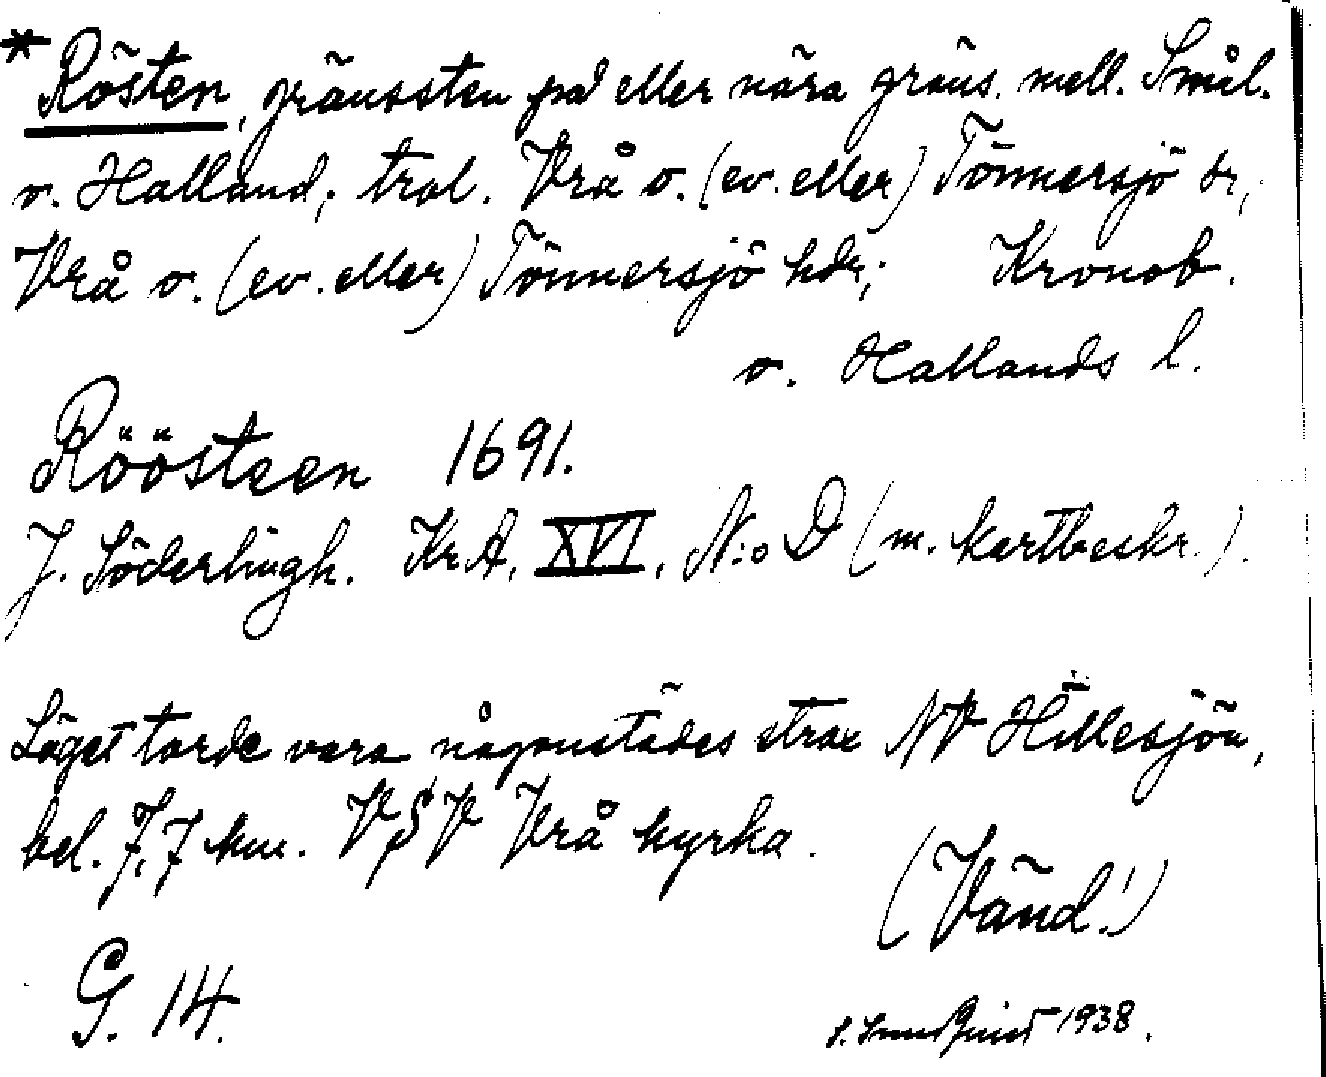 * Rösten, gränssten på eller nära gräns. mell. Smål.
o. Halland; trol. Vrå o. (ev. eller) Tönnersjö sr,
Vrå o. (ev. eller) Tönnersjö hdr; Kronob.
o. Hallands l.
Röösteen 1691.
J. Söderlingh. Kr.A. XVI, N:o D (m. kartbeskr.).
Läget torde vara någonstädes strax NV Hillesjön,
bel. 7,7 km. VSV Vrå kyrka.
(Vänd!)
G. 14.
1938.